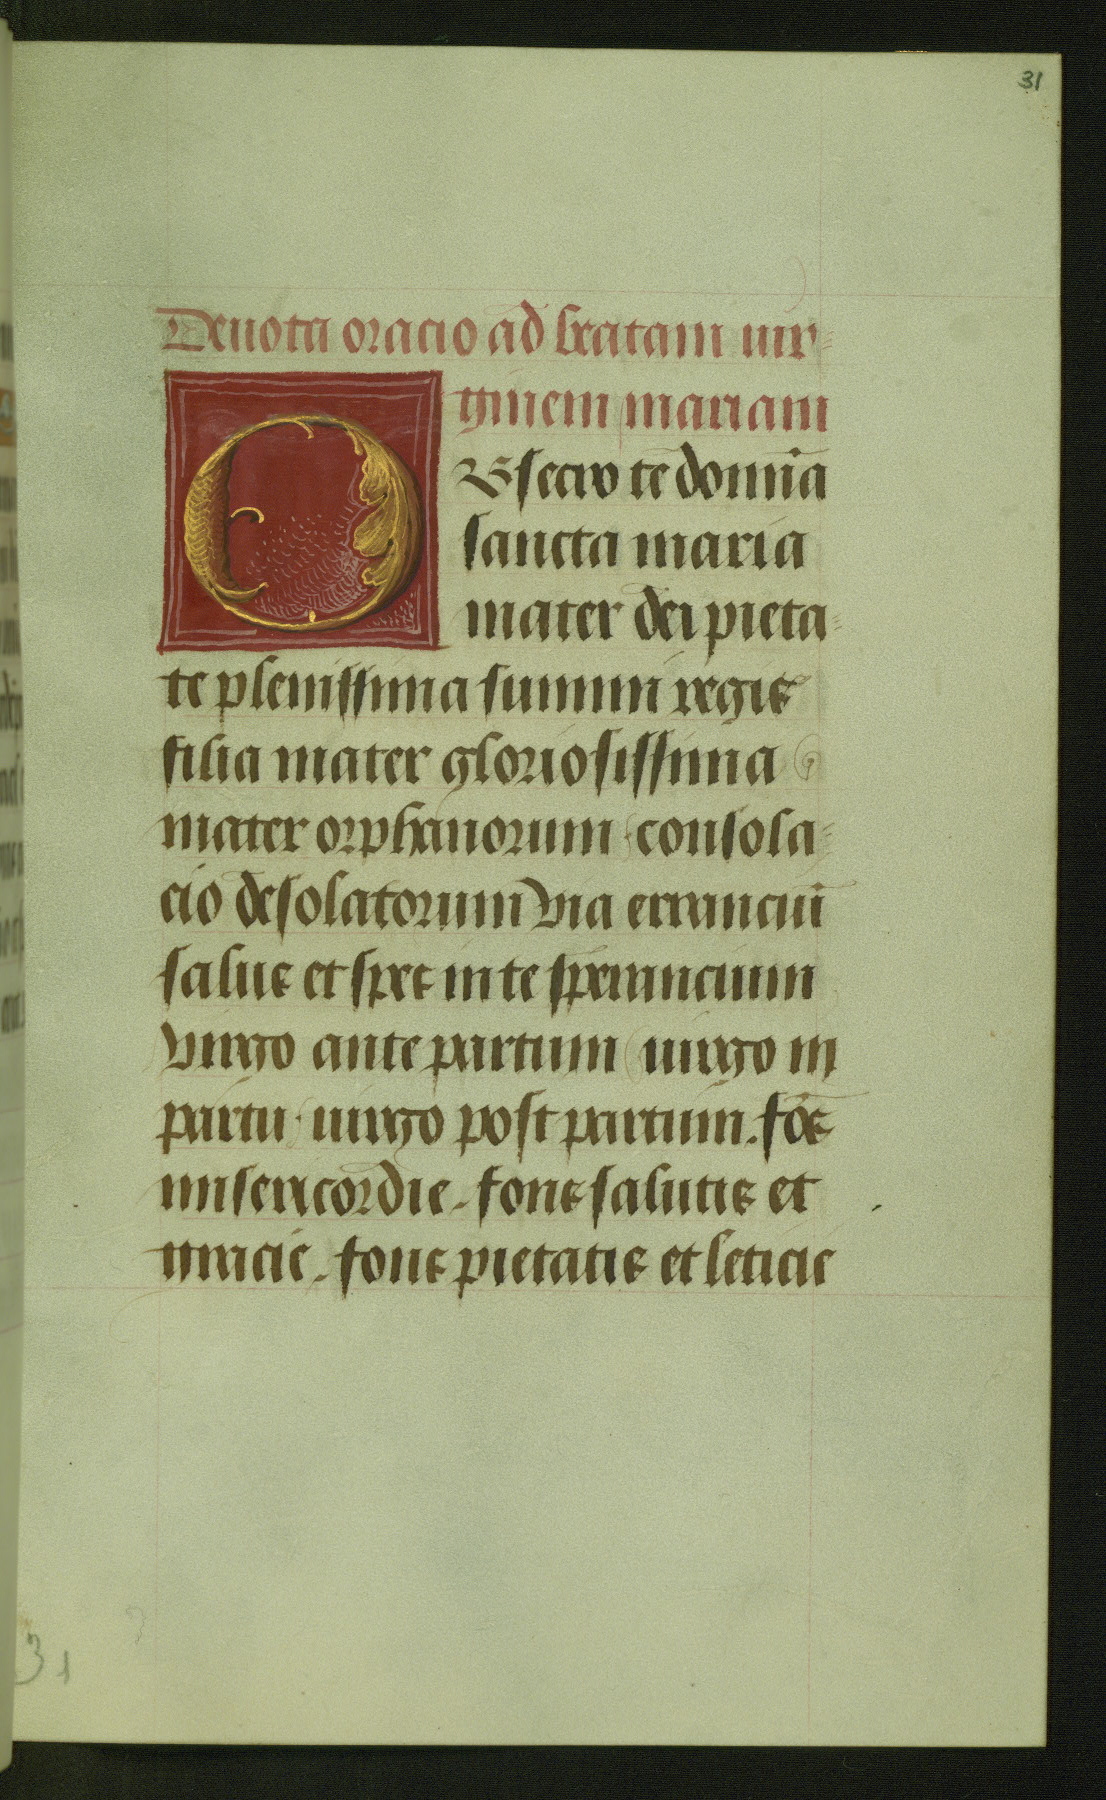 31
Deuota oracio ad beatam uir=
ginem mariam
OBsecro te domīa
sancta maria
mater dei pieta=
te plenissima summi regis
filia mater gloriosissima
mater orphanorum consola=
cio desolatorum via erranciū
salus et spes in te sperancium
virgo ante partum uirgo in
partu uirgo post partum. fōs
misericordie. fons salutis et
gracie. fons pietatis et leticie
31